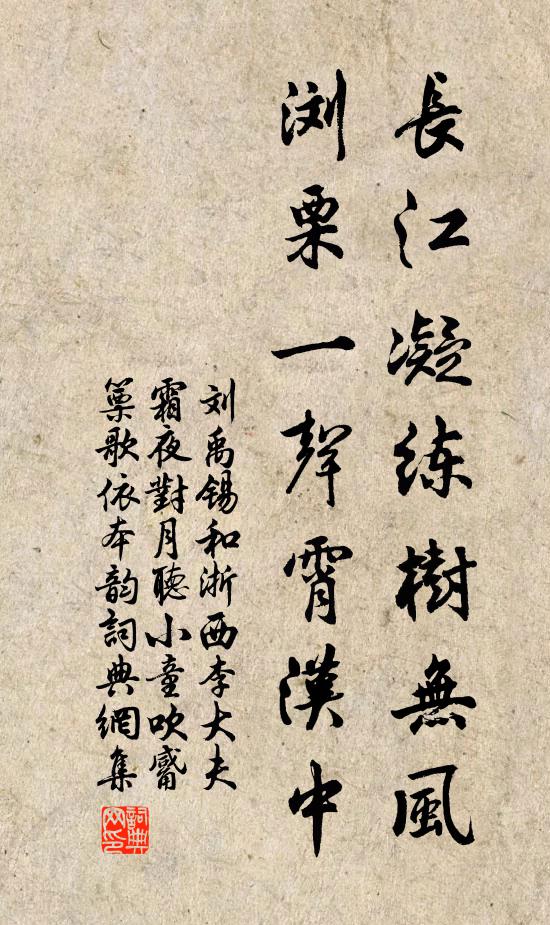 長江凝练樹無風
浏栗一聲霄漢中
刘禹锡和浙西李大夫
霜夜對月聽小童吹觱
篥歌依本韵詞典網集
詞典网印